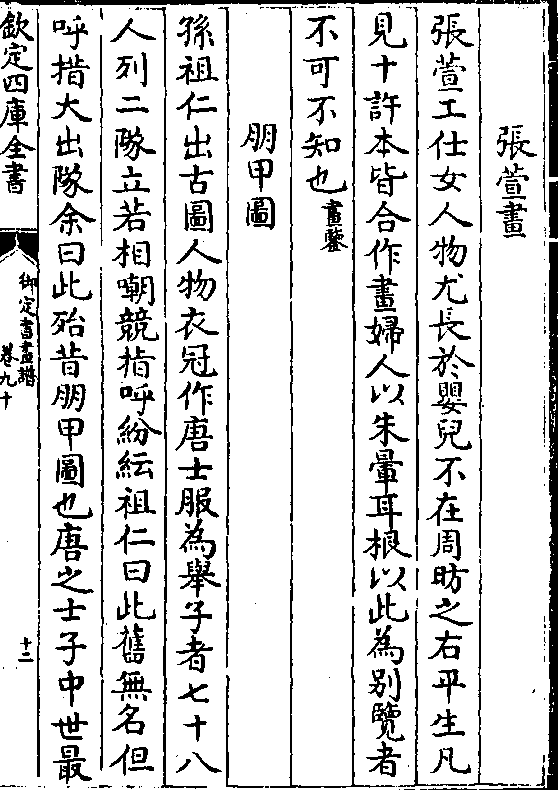 張萱畫
張萱工仕女人物尤長於嬰兒不在周昉之右平生凡
見十許本皆合作畫婦人以朱暈耳根以此為别覽者
不可不知也畫鑒
朋甲圖
孫祖仁出古圖人物衣冠作唐士服為舉子者七十八
人列二隊立若相嘲競指呼紛紜祖仁曰此舊無名但
呼措大出隊余曰此殆昔朋甲圖也唐之士子中世最
欽定四庫全書
御定書畫譜
卷九十
十二